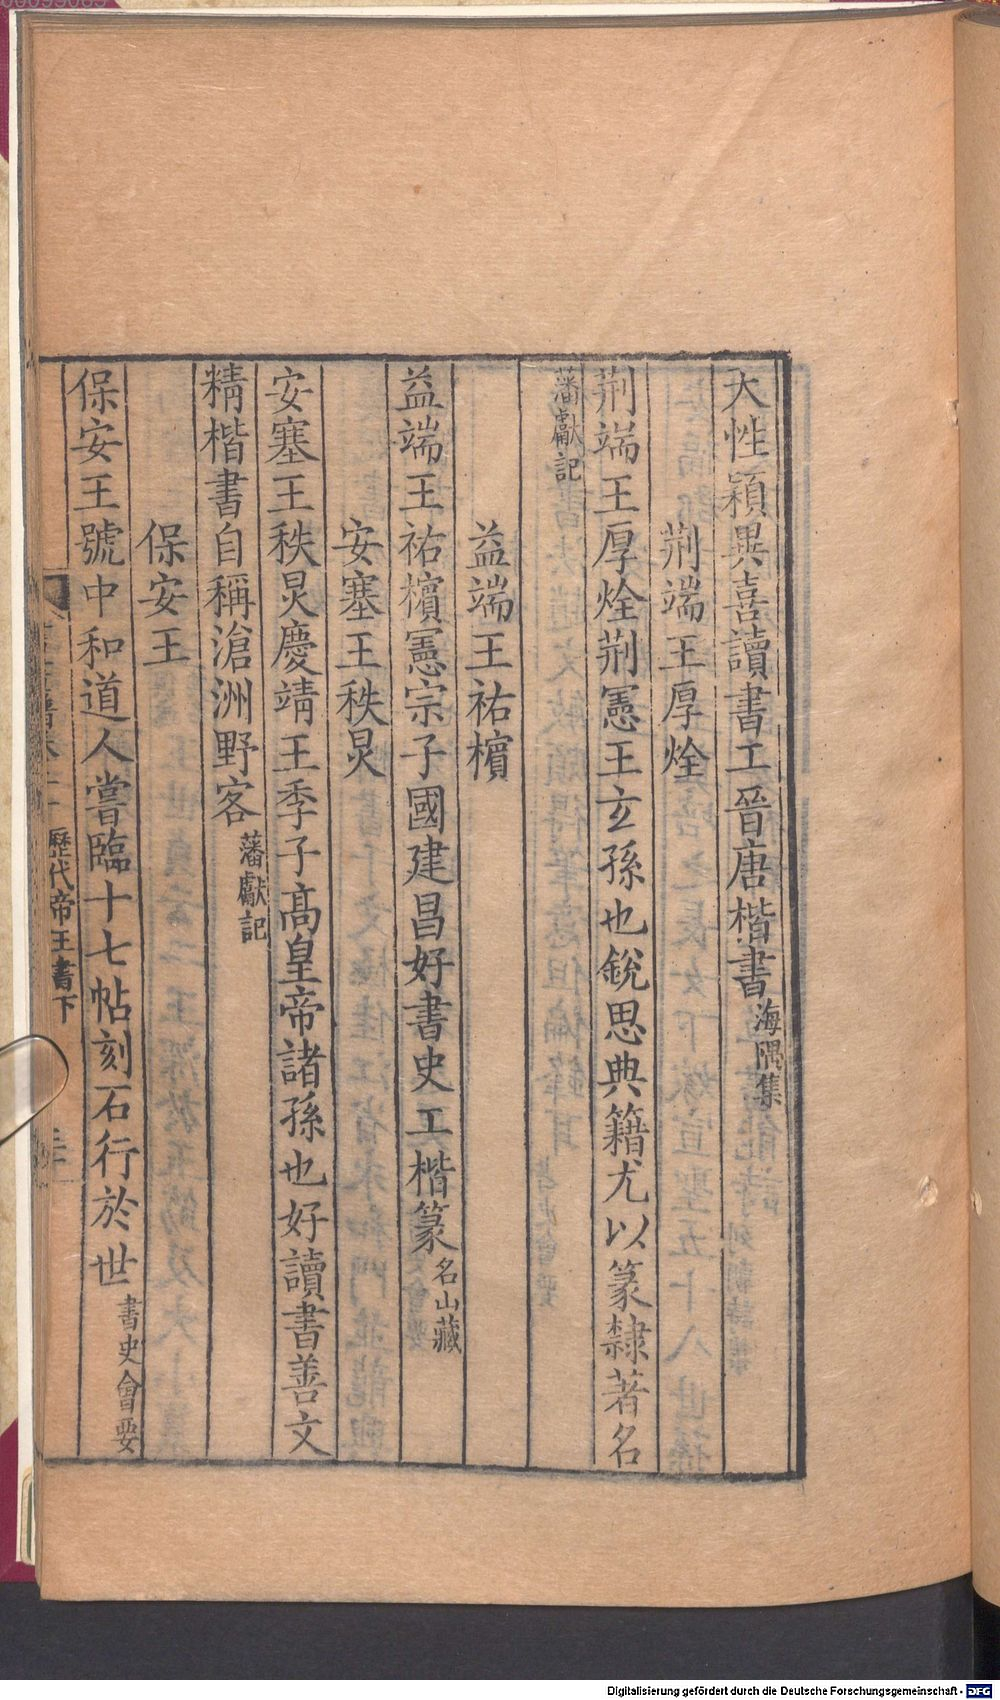 大性穎異喜讀書工晉唐楷書海隅集
荆端王厚烇
荆端王厚烇荆憲王玄孫也銳思典籍尤以篆隸著名
藩獻記
益端王祐檳
益端王祐檳憲宗子國建昌好書史工楷篆名山藏
安塞王秩炅
安塞王秩炅慶靖王季子髙皇帝諸孫也好讀書善文
精楷書自稱滄洲野客藩獻記
保安王
保安王號中和道人嘗臨十七帖刻石行於世書史會要
歷代帝王書下
Digitalisierung gefördert durch die Deutsche Forschungsgemeinschaft - DFG